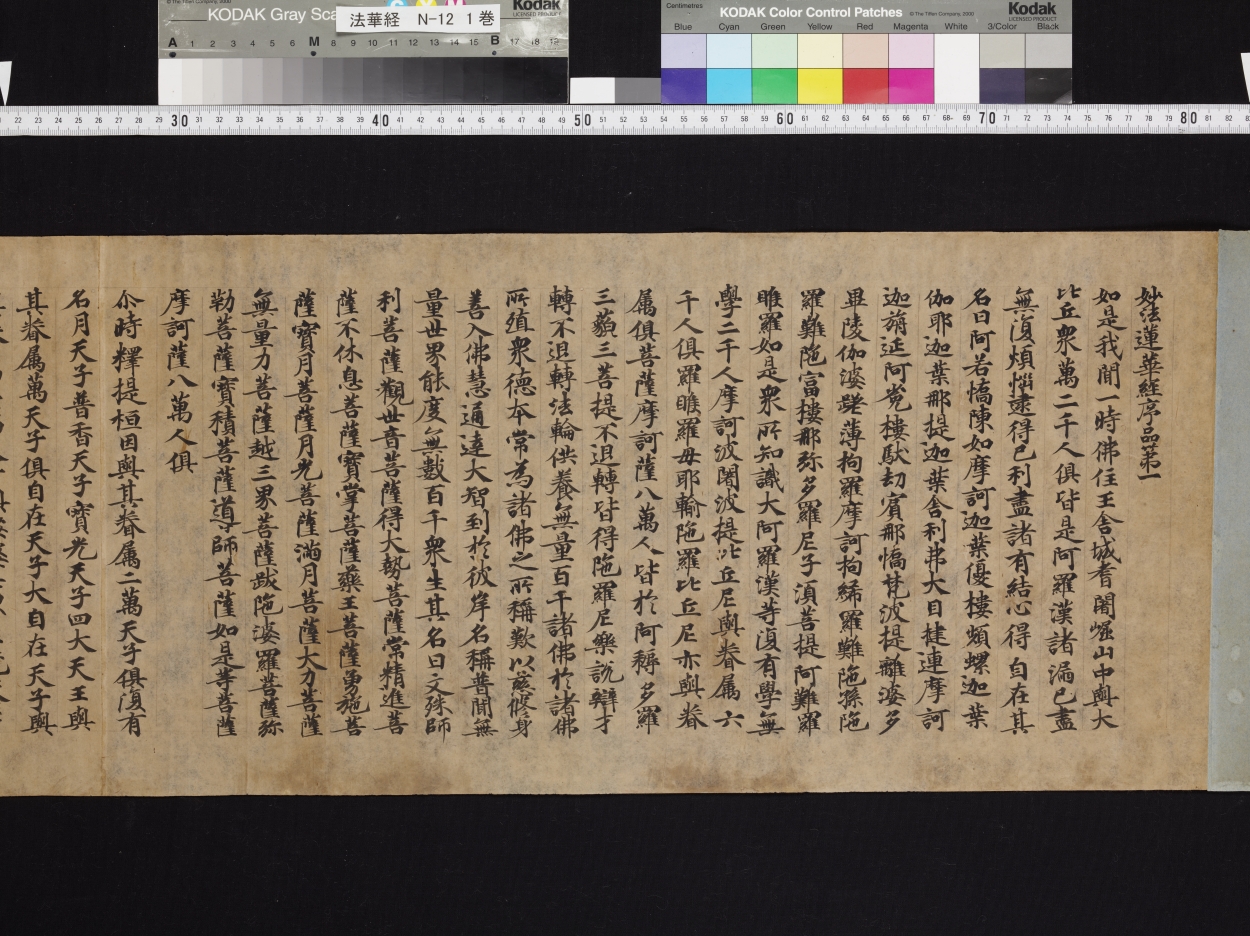 © The Tiffen Company, 2000
KODAK Gray Sca
Kodak
LICENSED PRODUCT
法華経 N-12 1巻
A 1 2 3 4 5 6 M 8 9 10 11 12 13 14 15 B 17 18 19
Centimetres
KODAK Color Control Patches
© The Tiffen Company, 2000
Kodak
LICENSED PRODUCT
Blue Cyan Green Yellow Red Magenta White 3/Color Black
22 23 24 25 26 27 28 29 30 31 32 33 34 35 36 37 38 39 40 41 42 43 44 45 46 47 48 49 50 51 52 53 54 55 56 57 58 59 60 61 62 63 64 65 66 67 68 69 70 71 72 73 74 75 76 77 78 79 80 81 82
妙法蓮華經序品第一
如是我聞一時佛住王舍城耆闍崛山中與大
比丘衆萬二千人俱皆是阿羅漢諸漏已盡
無復煩惱逮得己利盡諸有結心得自在其
名曰阿若憍陳如摩訶迦葉優樓頻螺迦葉
伽耶迦葉那提迦葉舍利弗大目揵連摩訶
迦旃延阿㝹樓馱劫賓那憍梵波提離婆多
畢陵伽婆蹉薄拘羅摩訶拘絺羅難陁孫陁
羅難陁富樓那弥多羅尼子湏菩提阿難羅
睺羅如是衆所知識大阿羅漢等復有學無
學二千人摩訶波闍波提比丘尼與眷属六
千人俱羅睺羅母耶輸陁羅比丘尼亦與眷
属俱菩薩摩訶薩八萬人皆於阿耨多羅
三藐三菩提不退轉皆得陁羅尼樂說辯才
轉不退轉法輪供養無量百千諸佛於諸佛
所殖衆德本常為諸佛之所稱歎以慈修身
善入佛慧通達大智到於彼岸名稱普聞無
量世界能度無數百千衆生其名曰文殊師
利菩薩觀世音菩薩得大勢菩薩常精進菩
薩不休息菩薩寶掌菩薩藥王菩薩勇施菩
薩寶月菩薩月光菩薩滿月菩薩大力菩薩
無量力菩薩越三界菩薩跋陁婆羅菩薩弥
勒菩薩寶積菩薩導師菩薩如是等菩薩
摩訶薩八萬人俱
尒時釋提桓因與其眷属二萬天子俱復有
名月天子普香天子寶光天子四大天王與
其眷属萬天子俱自在天子大自在天子與